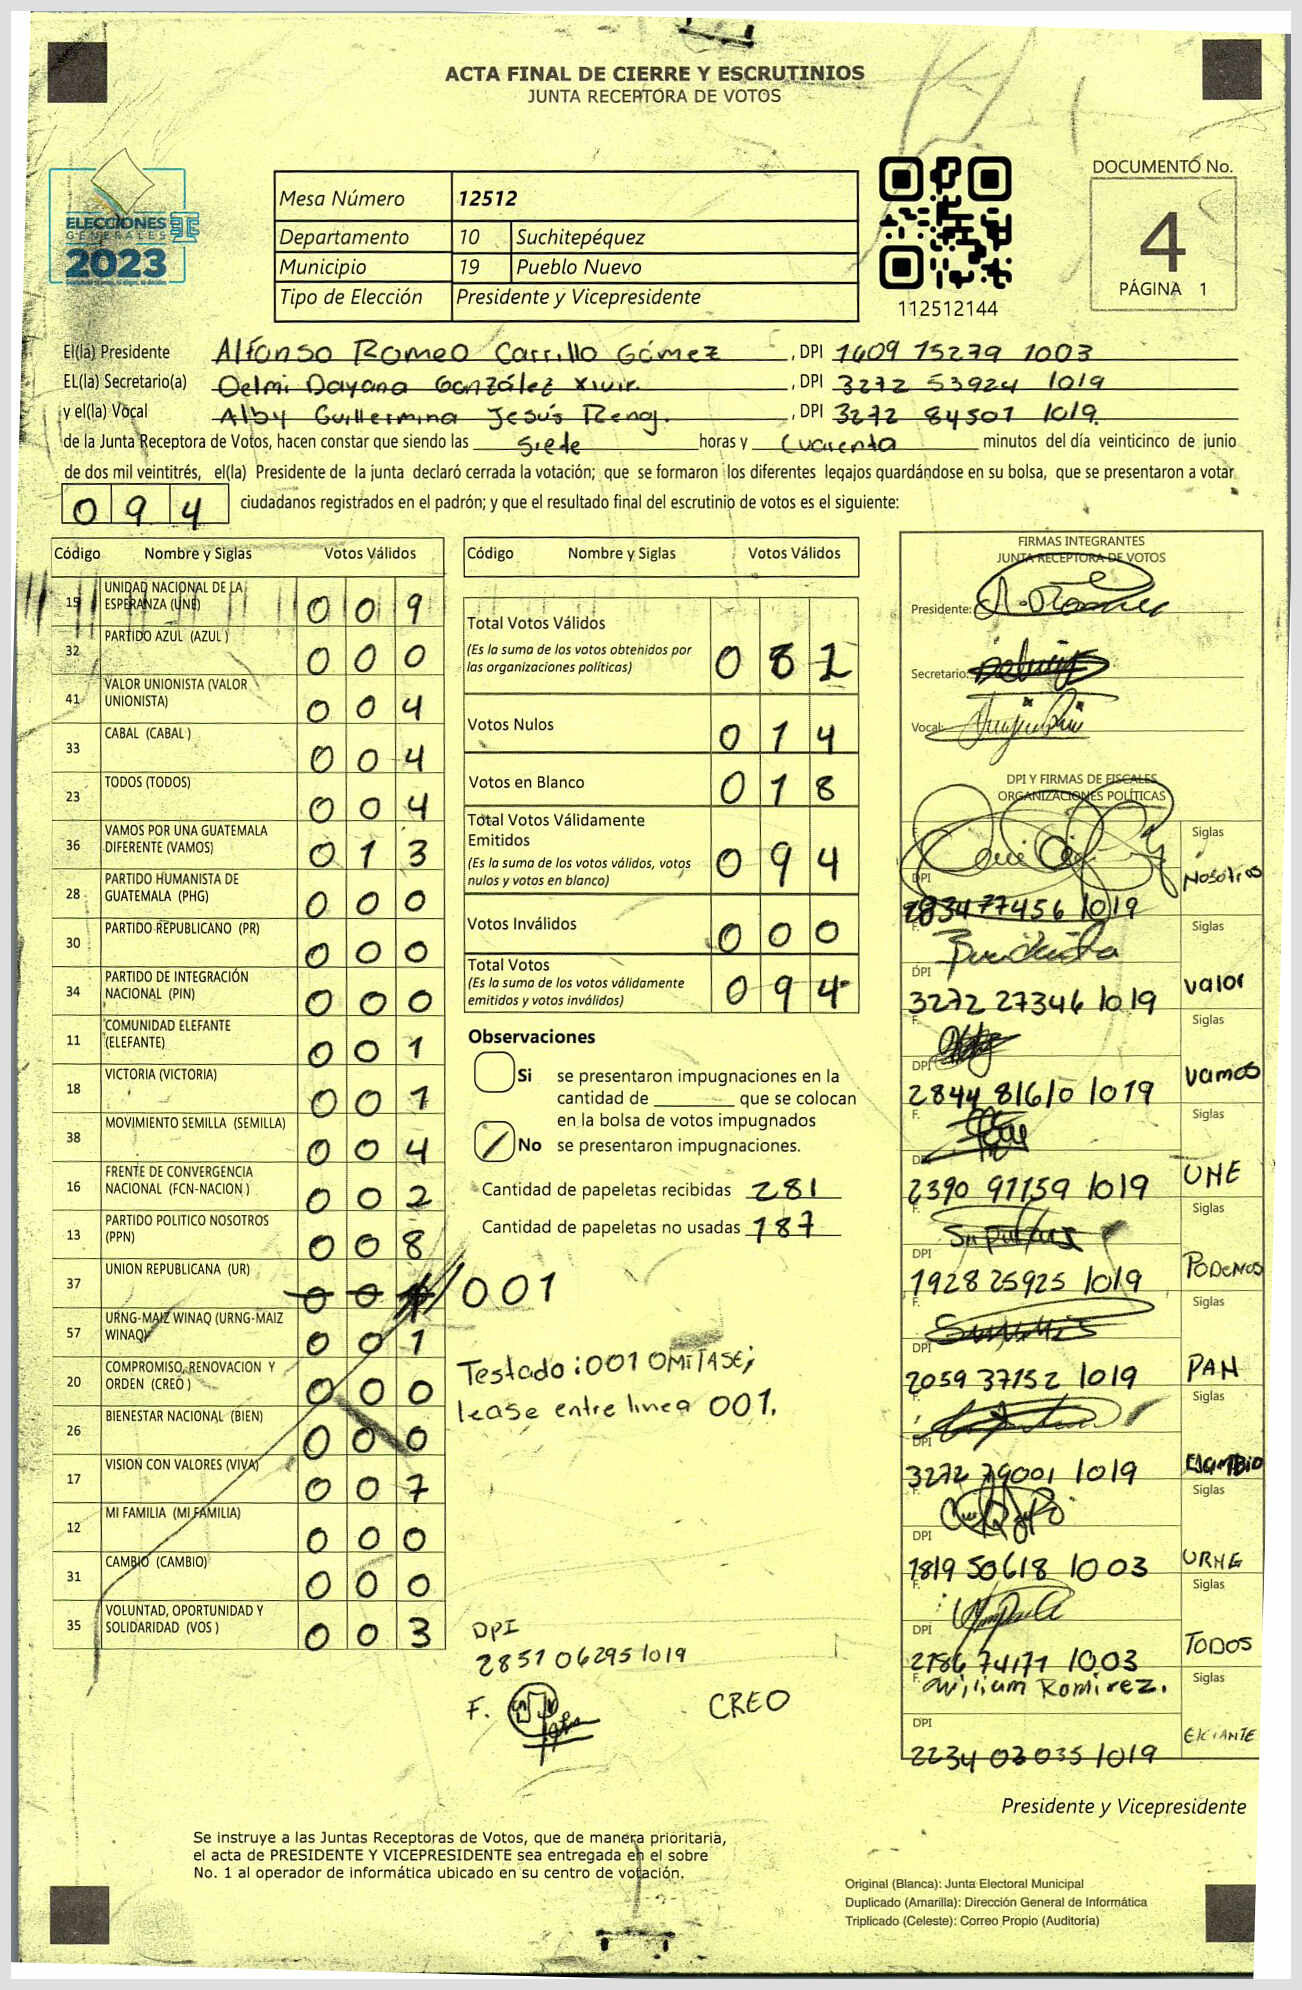 ACTA FINAL DE CIERRE Y ESCRUTINIOS
JUNTA RECEPTORA DE VOTOS
ELECCIONES
GENERALES
2023
Mesa Número 12512
Departamento 10 Suchitepéquez
Municipio 19 Pueblo Nuevo
Tipo de Elección Presidente y Vicepresidente
112512144
DOCUMENTO No.
4
PÁGINA 1
El(la) Presidente Alfonso Romeo Carrillo Gómez , DPI 1609 15279 1003
EL(la) Secretario(a) Delmi Dayana González , DPI 3272 53924 1019
y el(la) Vocal Alby Guillermina Jesús , DPI 3272 84507 1019.
de la Junta Receptora de Votos, hacen constar que siendo las siete horas y cuarenta minutos del día veinticinco de junio
de dos mil veintitrés, el(la) Presidente de la junta declaró cerrada la votación; que se formaron los diferentes legajos guardándose en su bolsa, que se presentaron a votar
094 ciudadanos registrados en el padrón; y que el resultado final del escrutinio de votos es el siguiente:
Código Nombre y Siglas Votos Válidos
15 UNIDAD NACIONAL DE LA ESPERANZA (UNE) 0 0 9
32 PARTIDO AZUL (AZUL ) 0 0 0
41 VALOR UNIONISTA (VALOR UNIONISTA) 0 0 4
33 CABAL (CABAL ) 0 0 4
23 TODOS (TODOS) 0 0 4
36 VAMOS POR UNA GUATEMALA DIFERENTE (VAMOS) 0 1 3
28 PARTIDO HUMANISTA DE GUATEMALA (PHG) 0 0 0
30 PARTIDO REPUBLICANO (PR) 0 0 0
34 PARTIDO DE INTEGRACIÓN NACIONAL (PIN) 0 0 0
11 COMUNIDAD ELEFANTE (ELEFANTE) 0 0 1
18 VICTORIA (VICTORIA) 0 0 1
38 MOVIMIENTO SEMILLA (SEMILLA) 0 0 4
16 FRENTE DE CONVERGENCIA NACIONAL (FCN-NACION ) 0 0 2
13 PARTIDO POLITICO NOSOTROS (PPN) 0 0 8
37 UNION REPUBLICANA (UR) 0 0 1 001
57 URNG-MAIZ WINAQ (URNG-MAIZ WINAQ) 0 0 1
20 COMPROMISO, RENOVACION Y ORDEN (CREO ) 0 0 0
26 BIENESTAR NACIONAL (BIEN) 0 0 0
17 VISION CON VALORES (VIVA) 0 0 7
12 MI FAMILIA (MI FAMILIA) 0 0 0
31 CAMBIO (CAMBIO) 0 0 0
35 VOLUNTAD, OPORTUNIDAD Y SOLIDARIDAD (VOS ) 0 0 3
Código Nombre y Siglas Votos Válidos
Total Votos Válidos
(Es la suma de los votos obtenidos por
las organizaciones políticas)
Votos Nulos 0 1 4
Votos en Blanco 0 1 8
Total Votos Válidamente
Emitidos 0 9 4
(Es la suma de los votos válidos, votos
nulos y votos en blanco)
Votos Inválidos 0 0 0
Total Votos 0 9 4
(Es la suma de los votos válidamente
emitidos y votos inválidos)
Observaciones
Si se presentaron impugnaciones en la
cantidad de ________ que se colocan
en la bolsa de votos impugnados
No se presentaron impugnaciones.
Cantidad de papeletas recibidas 281
Cantidad de papeletas no usadas 187
Testado: 001 OMITASE;
lease entre linea 001.
DPI
2851 06295 1019
F. CREO
FIRMAS INTEGRANTES
JUNTA RECEPTORA DE VOTOS
Presidente:
Secretario:
Vocal:
DPI Y FIRMAS DE FISCALES
ORGANIZACIONES POLÍTICAS
F. Siglas
DPI 2834 77456 1019 Nosotros
F. Siglas
DPI 3272 27346 1019 valor
F. Siglas
DPI 2844 81610 1019 vamos
F. Siglas
DPI 2390 97159 1019 UNE
F. Siglas
DPI 1928 25925 1019 PODEMOS
F. Siglas
DPI 2059 37152 1019 PAN
F. Siglas
DPI 3272 79001 1019
F. Siglas
DPI 1819 50618 1003 URNG
F. Siglas
DPI 2186 74171 1003 TODOS
F. William Ramirez. Siglas
DPI 2234 03035 1019
Presidente y Vicepresidente
Se instruye a las Juntas Receptoras de Votos, que de manera prioritaria,
el acta de PRESIDENTE Y VICEPRESIDENTE sea entregada en el sobre
No. 1 al operador de informática ubicado en su centro de votación.
Original (Blanca): Junta Electoral Municipal
Duplicado (Amarilla): Dirección General de Informática
Triplicado (Celeste): Correo Propio (Auditoría)